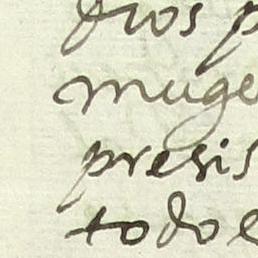 dios p
muge
presis
todo e